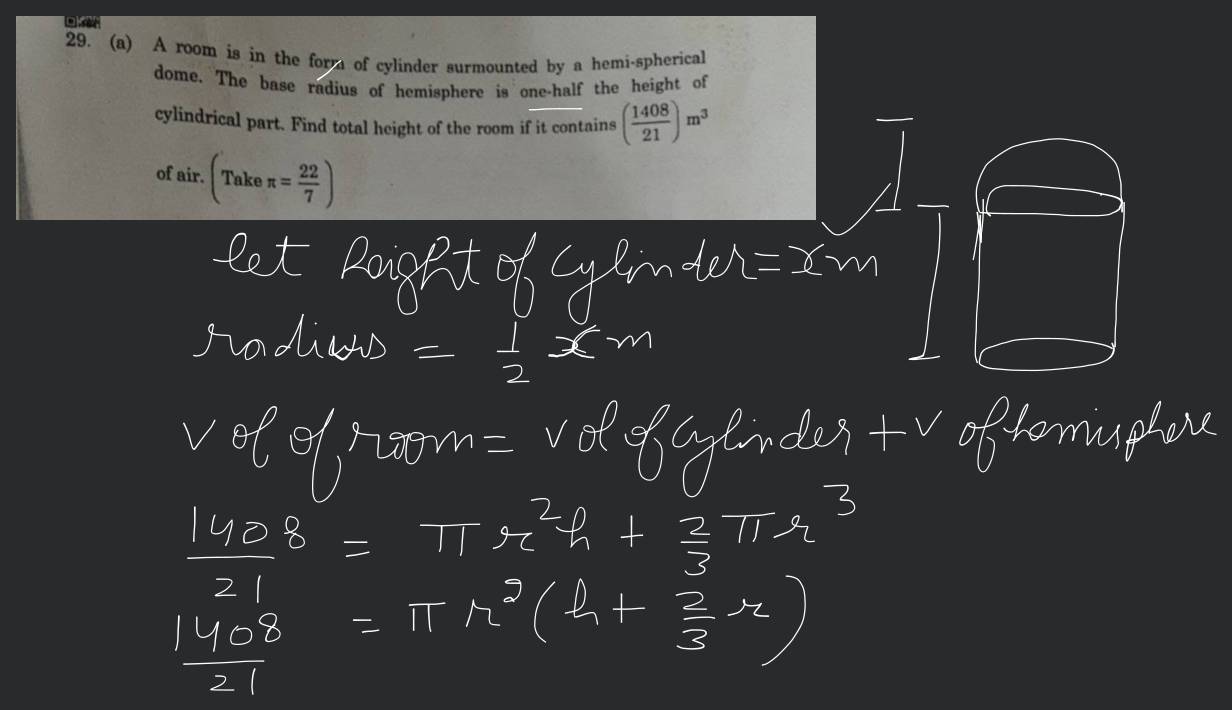 29. (a) A room is in the form of cylinder surmounted by a hemi-spherical
dome. The base radius of hemisphere is one-half the height of
cylindrical part. Find total height of the room if it contains (1408/21) m³
of air. (Take π = 22/7)
let height of cylinder = x m
radius = 1/2 x m
v ol of room = v ol of cylinder + v of hemisphere
1408/21 = π r² h + 2/3 π r³
1408/21 = π r² (h + 2/3 r)